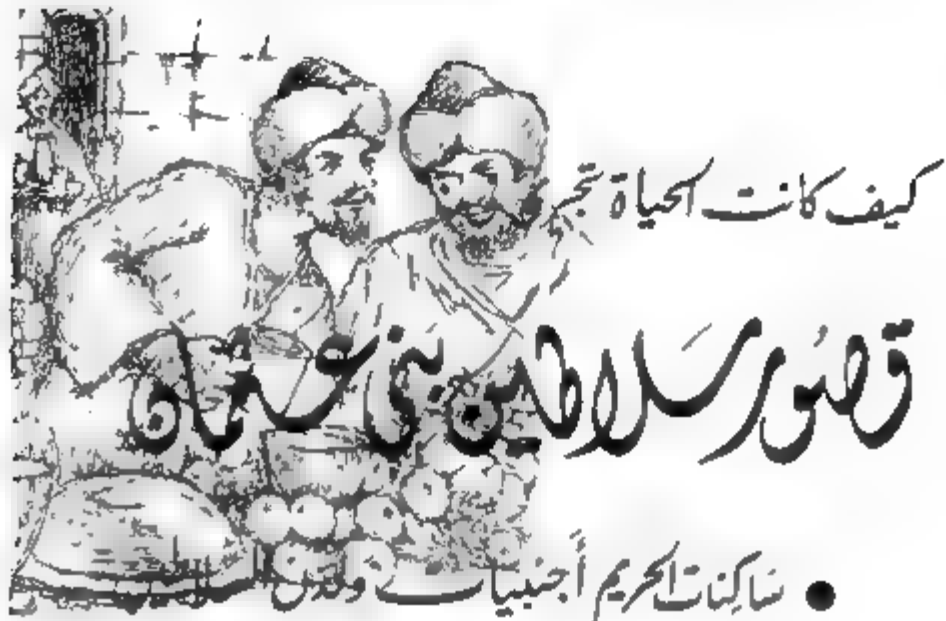 كيف كانت الحياة
قصور سلاطين بنى عثمان
• ساكنات الحريم أجنبيات ولدن